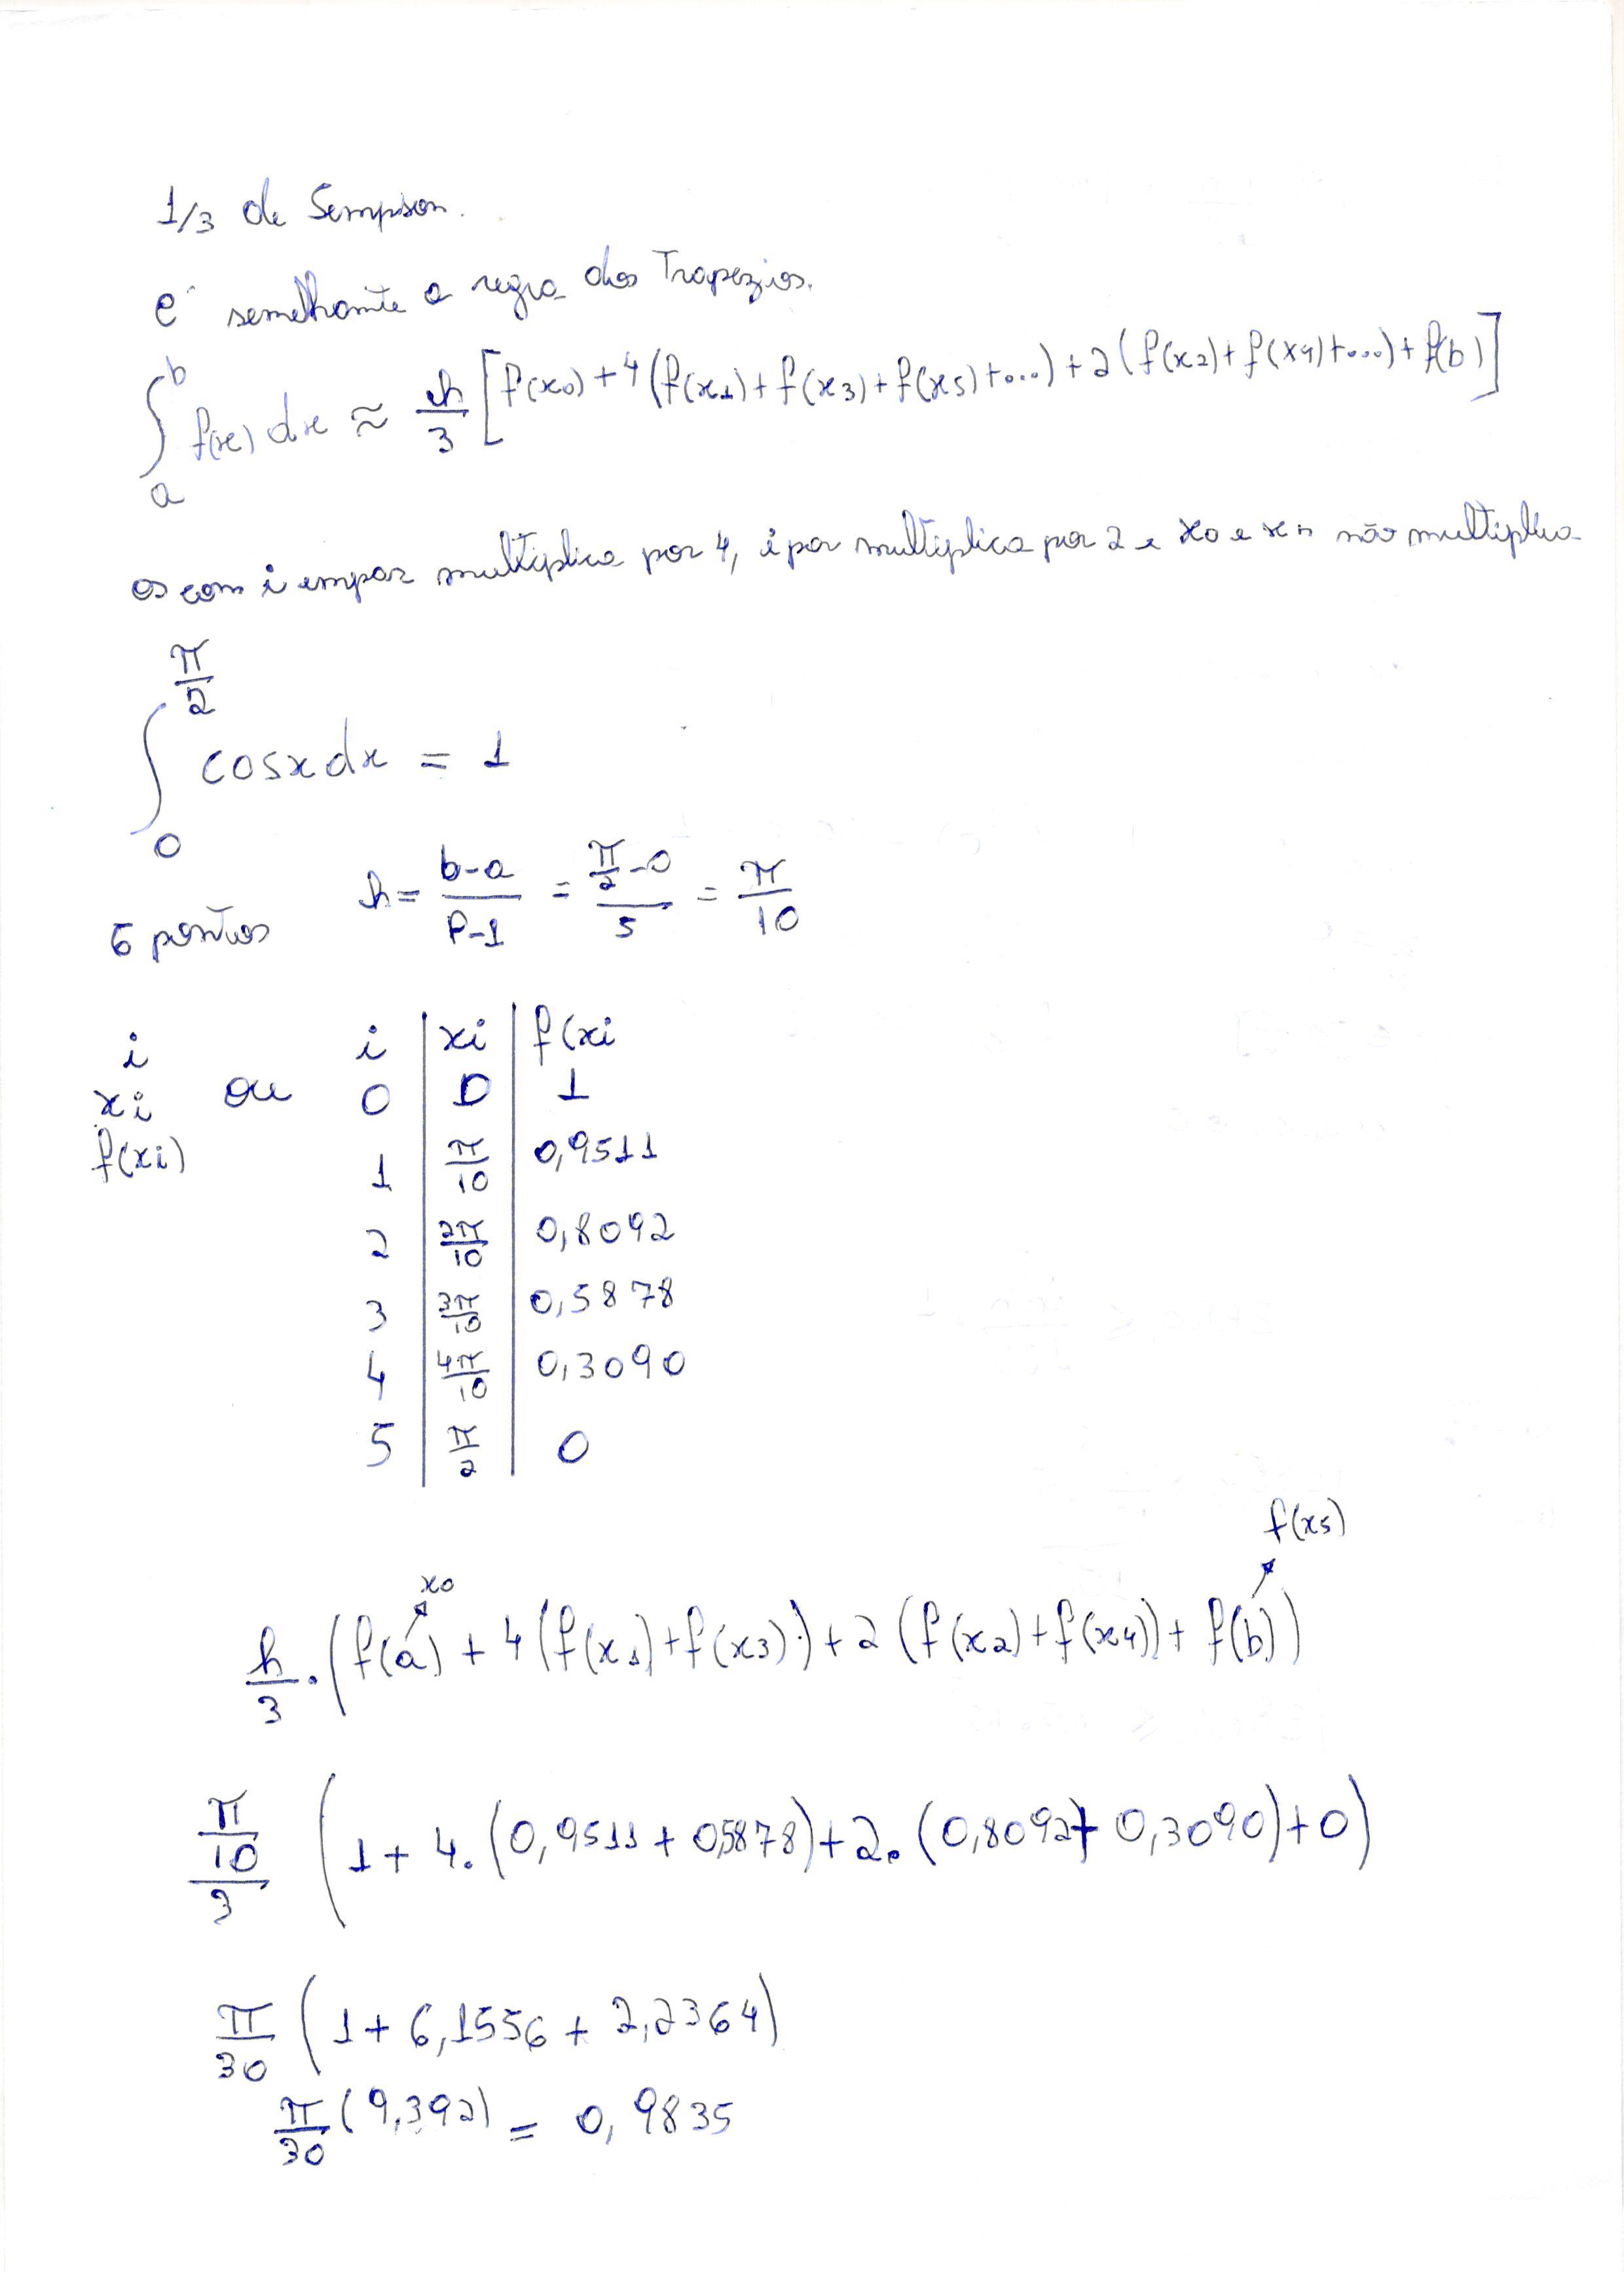 1/3 de Sempson.
é semelhante a regra dos Trapezios.
∫_a^b f(x) dx ≈ h/3 [f(x0) + 4(f(x1) + f(x3) + f(x5) + ...) + 2(f(x2) + f(x4) + ...) + f(b)]
os com i impar multiplica por 4, i par multiplica por 2 e x0 e xn não multiplica
∫_0^(π/2) cosx dx = 1
6 pontos h = (b-a)/(P-1) = (π/2 - 0)/5 = π/10
i
xi
f(xi)
ou
i | xi | f(xi
0 | 0 | 1
1 | π/10 | 0,9511
2 | 2π/10 | 0,8092
3 | 3π/10 | 0,5878
4 | 4π/10 | 0,3090
5 | π/2 | 0
x0 f(x5)
h/3 . (f(a) + 4(f(x1) + f(x3)) + 2(f(x2) + f(x4)) + f(b))
(π/10)/3 (1 + 4. (0,9511 + 0,5878) + 2. (0,8092 + 0,3090) + 0)
π/30 (1 + 6,1556 + 2,2364)
π/30 (9,392) = 0,9835